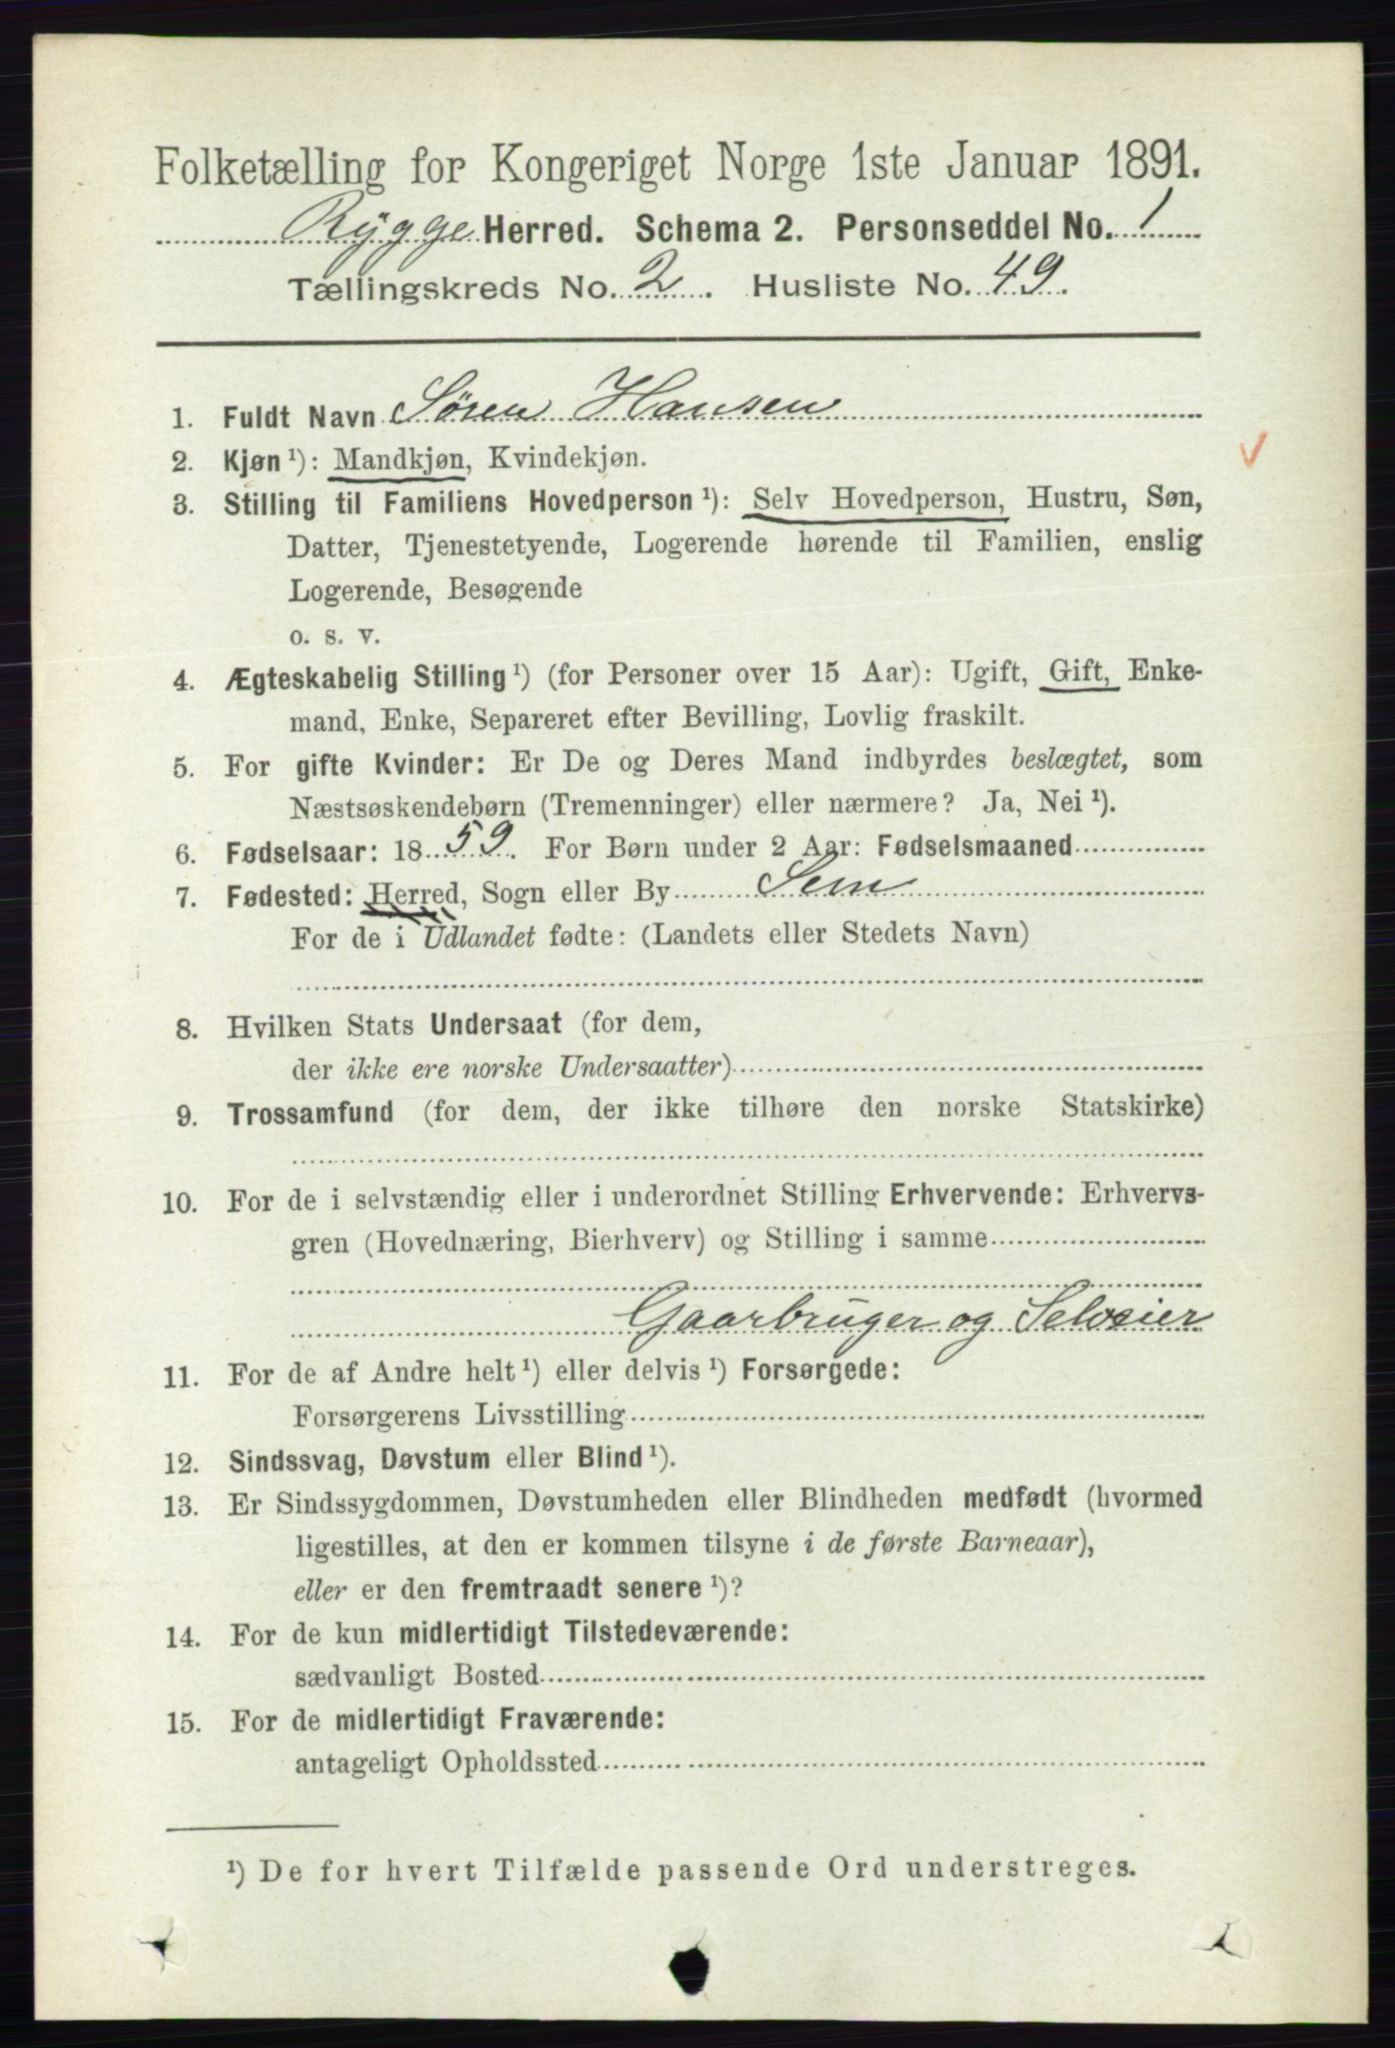 Folketælling for Kongeriget Norge 1ste Januar 1891.
Rygge Herred. Schema 2. Personseddel No. 1
Tællingskreds No. 2. Husliste No. 49.
1. Fuldt Navn Søren Hansen
2. Kjøn ¹): Mandkjøn, Kvindekjøn.
3. Stilling til Familiens Hovedperson ¹): Selv Hovedperson, Hustru, Søn,
Datter, Tjenestetyende, Logerende hørende til Familien, enslig
Logerende, Besøgende
o. s. v.
4. Ægteskabelig Stilling ¹) (for Personer over 15 Aar): Ugift, Gift, Enke-
mand, Enke, Separeret efter Bevilling, Lovlig fraskilt.
5. For gifte Kvinder: Er De og Deres Mand indbyrdes beslægtet, som
Næstsøskendebørn (Tremenninger) eller nærmere? Ja, Nei ¹).
6. Fødselsaar: 1859. For Børn under 2 Aar: Fødselsmaaned
7. Fødested: Herred, Sogn eller By Sem
For de i Udlandet fødte: (Landets eller Stedets Navn)
8. Hvilken Stats Undersaat (for dem,
der ikke ere norske Undersaatter)
9. Trossamfund (for dem, der ikke tilhøre den norske Statskirke)
10. For de i selvstændig eller i underordnet Stilling Erhvervende: Erhvervs-
gren (Hovednæring, Bierhverv) og Stilling i samme
Gaarbruger og Selveier
11. For de af Andre helt ¹) eller delvis ¹) Forsørgede:
Forsørgerens Livsstilling
12. Sindssvag, Døvstum eller Blind ¹).
13. Er Sindssygdommen, Døvstumheden eller Blindheden medfødt (hvormed
ligestilles, at den er kommen tilsyne i de første Barneaar),
eller er den fremtraadt senere ¹)?
14. For de kun midlertidigt Tilstedeværende:
sædvanligt Bosted
15. For de midlertidigt Fraværende:
antageligt Opholdssted
¹) De for hvert Tilfælde passende Ord understreges.